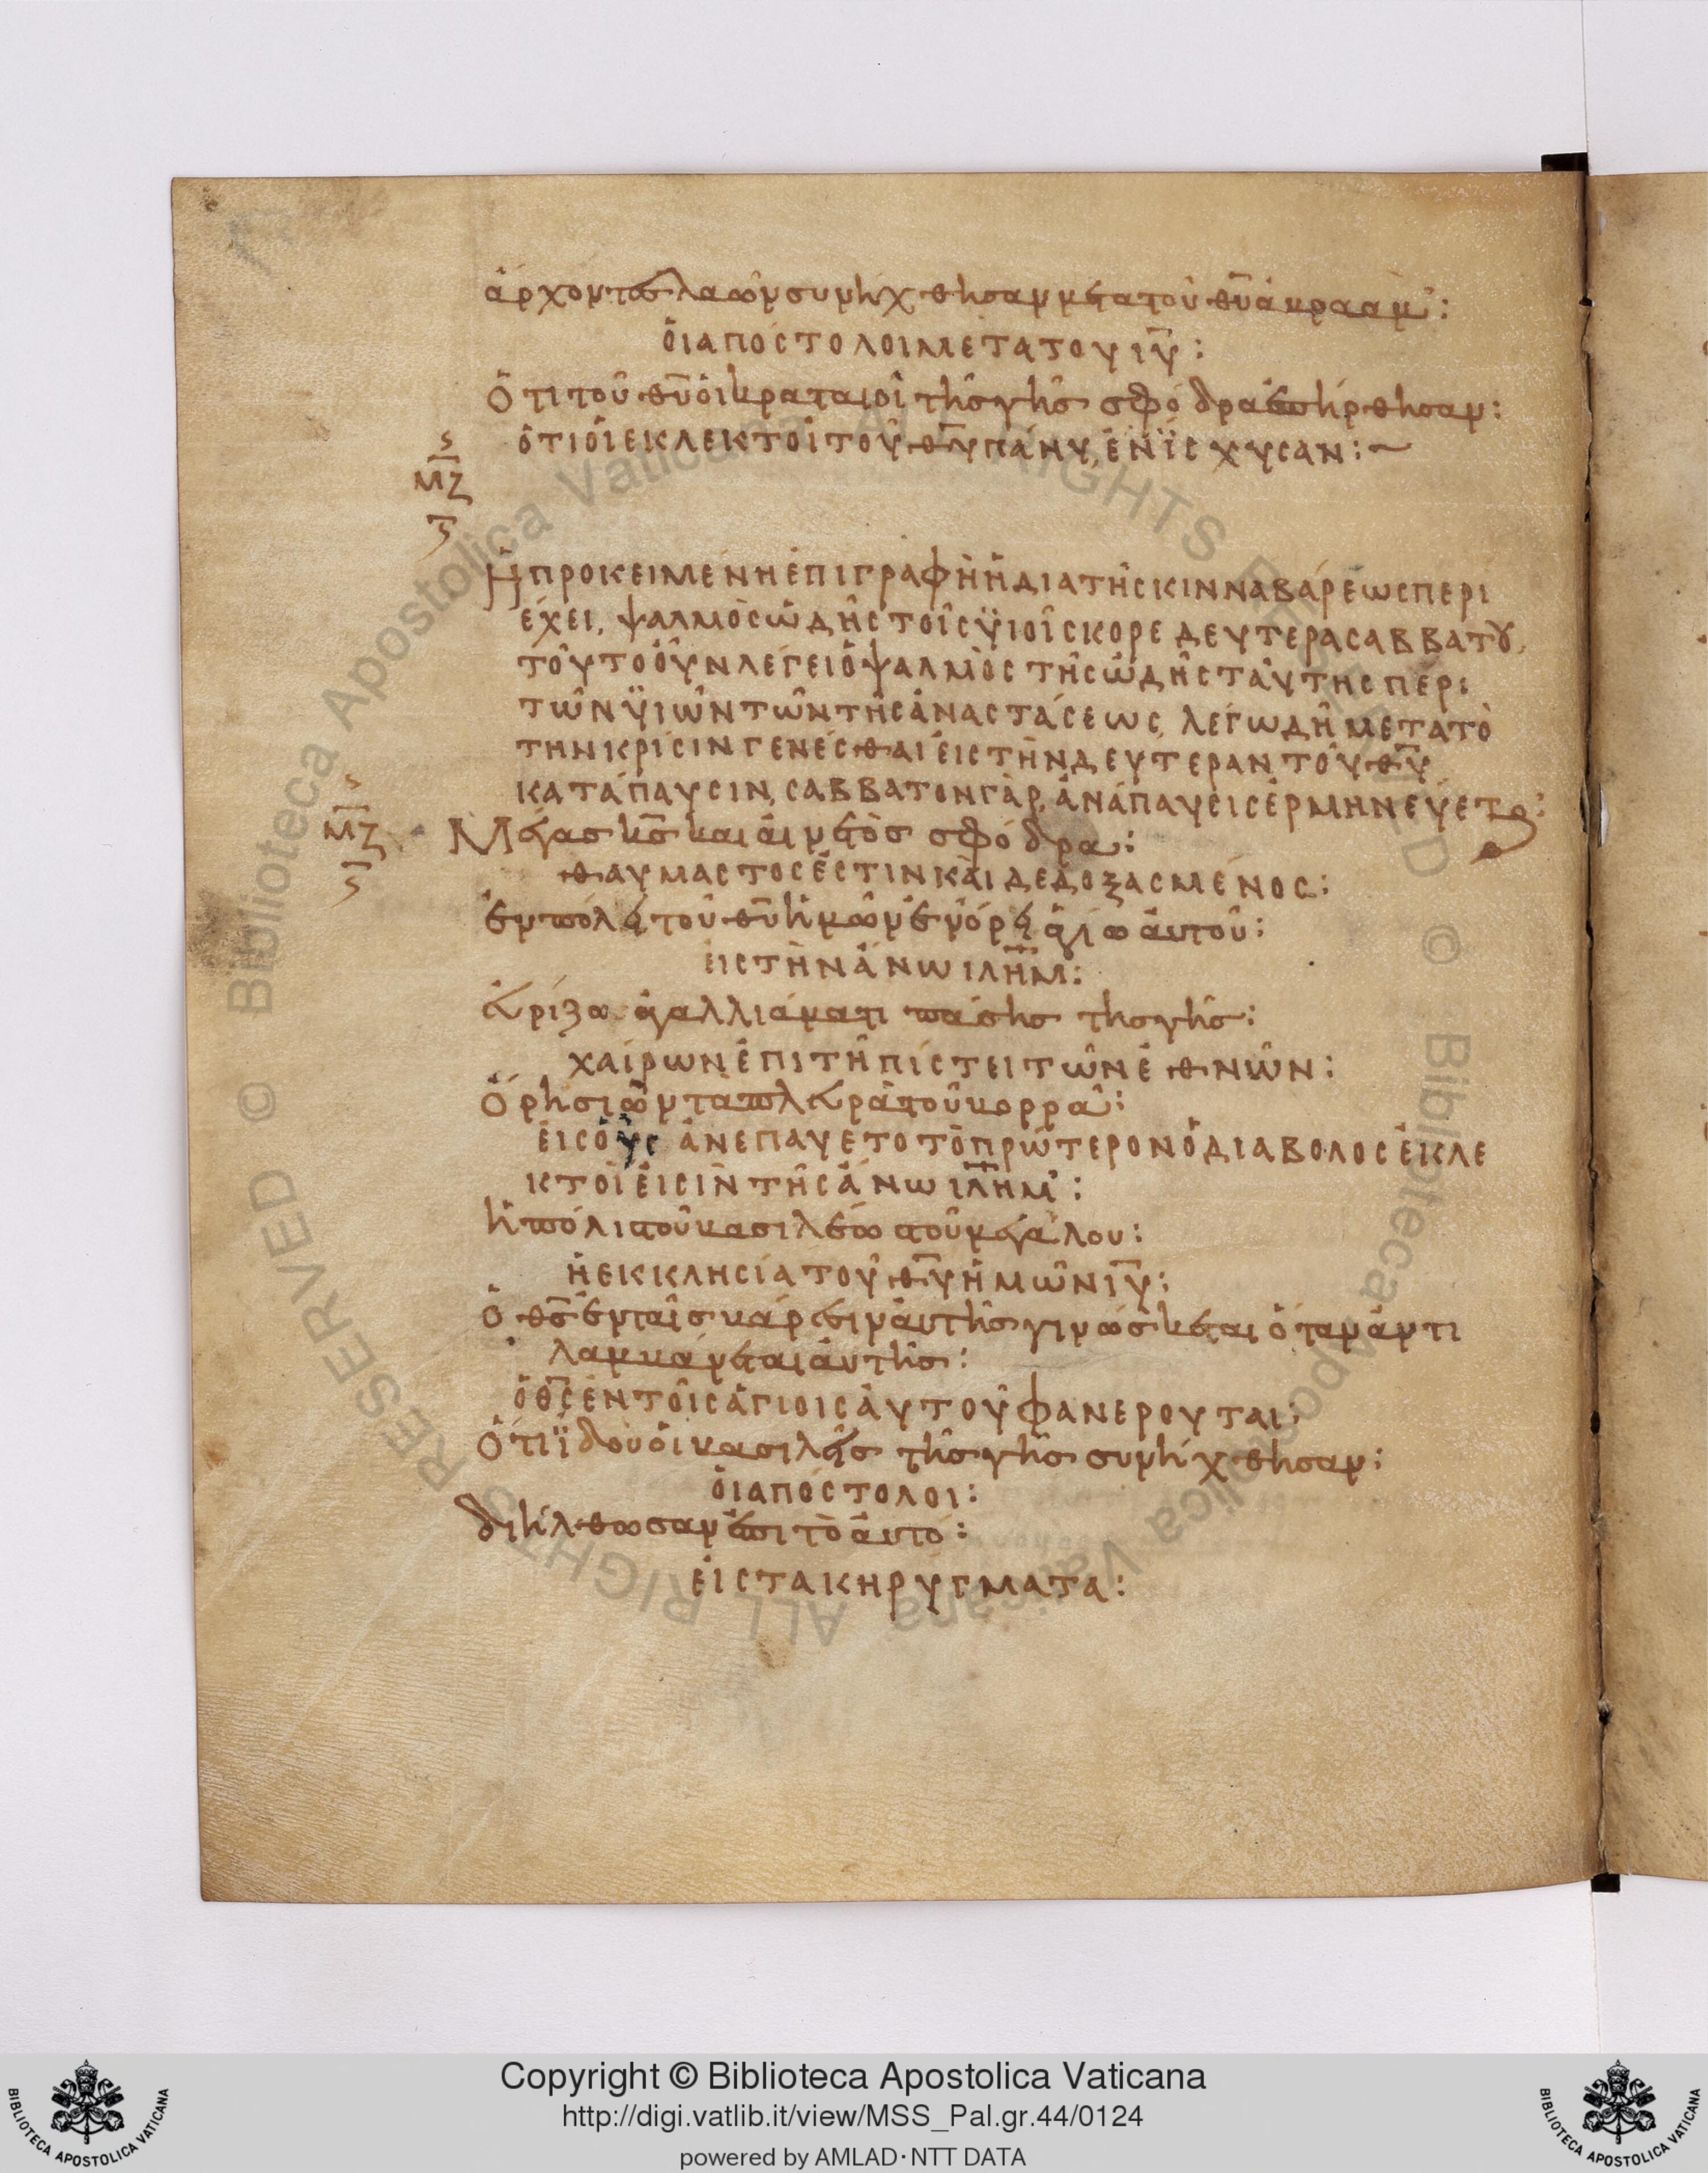 ἄρχοντες λαῶν συνήχθησαν μετὰ τοῦ θῦ ἀβραάμ:
ὁι απόστολοι μετα του ιῦ:
Ὅτι τοῦ θῦ ὁι κραταιοὶ τῆς γῆς σφόδρα ἐπήρθησαν:
ὅτι ὁι εκλεκτοὶ τοῦ θῦ πάνυ, ἐνΐσχυσαν:~
ς
μζ
ς
Ἡ προκειμένη ἐπιγραφὴ ἡ δια τῆς κινναβάρεως περι
έχει, ψαλμὸς ὠδῆς τοῖς ϋιοῖς κορε δευτερα σαββατου,
τοῦτο οὖν λέγει ὁ ψαλμὸς τῆς ὠδῆς ταύτης περι
τῶν ϋιῶν τῶν τῆς ἀναστάσεως, λέγω δὴ μετα τὸ
την κρίσιν γενέσθαι εἰς τὴν δευτεραν τοῦ θῦ
κατάπαυσιν, σαββατον γὰρ, ἀνάπαυσις ἑρμηνεύεται:
ς
μζ
ς
Μέγας κς καὶ αἰνετὸς σφόδρα:
θαυμαστος ἐστιν καὶ δεδοξασμένος:
ἐν πόλει τοῦ θῦ ἡμῶν ἐν ὄρει ἁγίω αὐτοῦ:
εις τὴν ἄνω ιλημ:
ἐυρίζω ἀγαλλιάματι πάσης της γῆς:
χαίρων ἐπι τῆ πίστει τῶν ἐθνῶν:
Ὄρη σιῶν τὰ πλευρὰ τοῦ βορρᾶ:
εἰς οὓς ἀνεπαυετο τὸ πρώτερον ὁ διαβολος ἐκλε
κτοὶ εἰσὶν τῆς ἄνω ιλημ:
ἡ πόλι τοῦ βασιλέω τοῦ μεγάλου:
ἡ εκκλησία τοῦ θῦ ἡμῶν ιῦ:
ὁ θς ἐν ταῖς βάρεσιν ἀυτῆς γινώσκεται ὅταν ἀντι
λαμβάνεται ἀυτῆς:
ὁ θς ἐν τοῖς ἁγιοις ἀυτοῦ φανερουται:
Ὅτι ϊδοὺ ὁι βασιλεῖς τῆς γῆς συνήχθησαν:
ὁι απόστολοι:
διήλθωσαν ἐπι τὸ ἀυτό:
ἐις τα κηρύγματα:
Copyright © Biblioteca Apostolica Vaticana
http://digi.vatlib.it/view/MSS_Pal.gr.44/0124
powered by AMLAD·NTT DATA